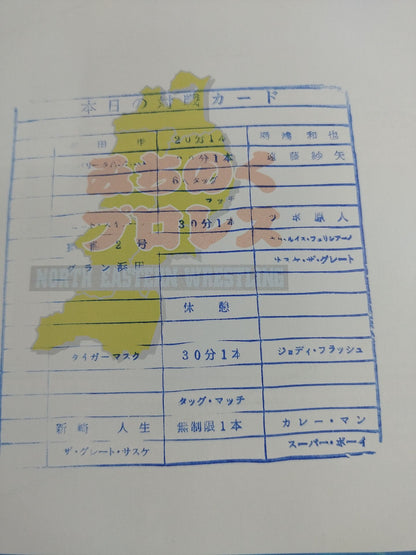 本日の対戦カード
20分1本 和也
分1本 遠藤紗矢
6 タッグ
マッチ
みちのく
プロレス
30分1本
2号
グラン浜田 サスケ・ザ・グレート
NORTH EASTERN WRESTLING
休憩
タイガーマスク 30分1本 ジョディ・フラッシュ
タッグ・マッチ
新崎 人生 無制限1本 カレー・マン
ザ・グレート・サスケ スーパー・ボーイ